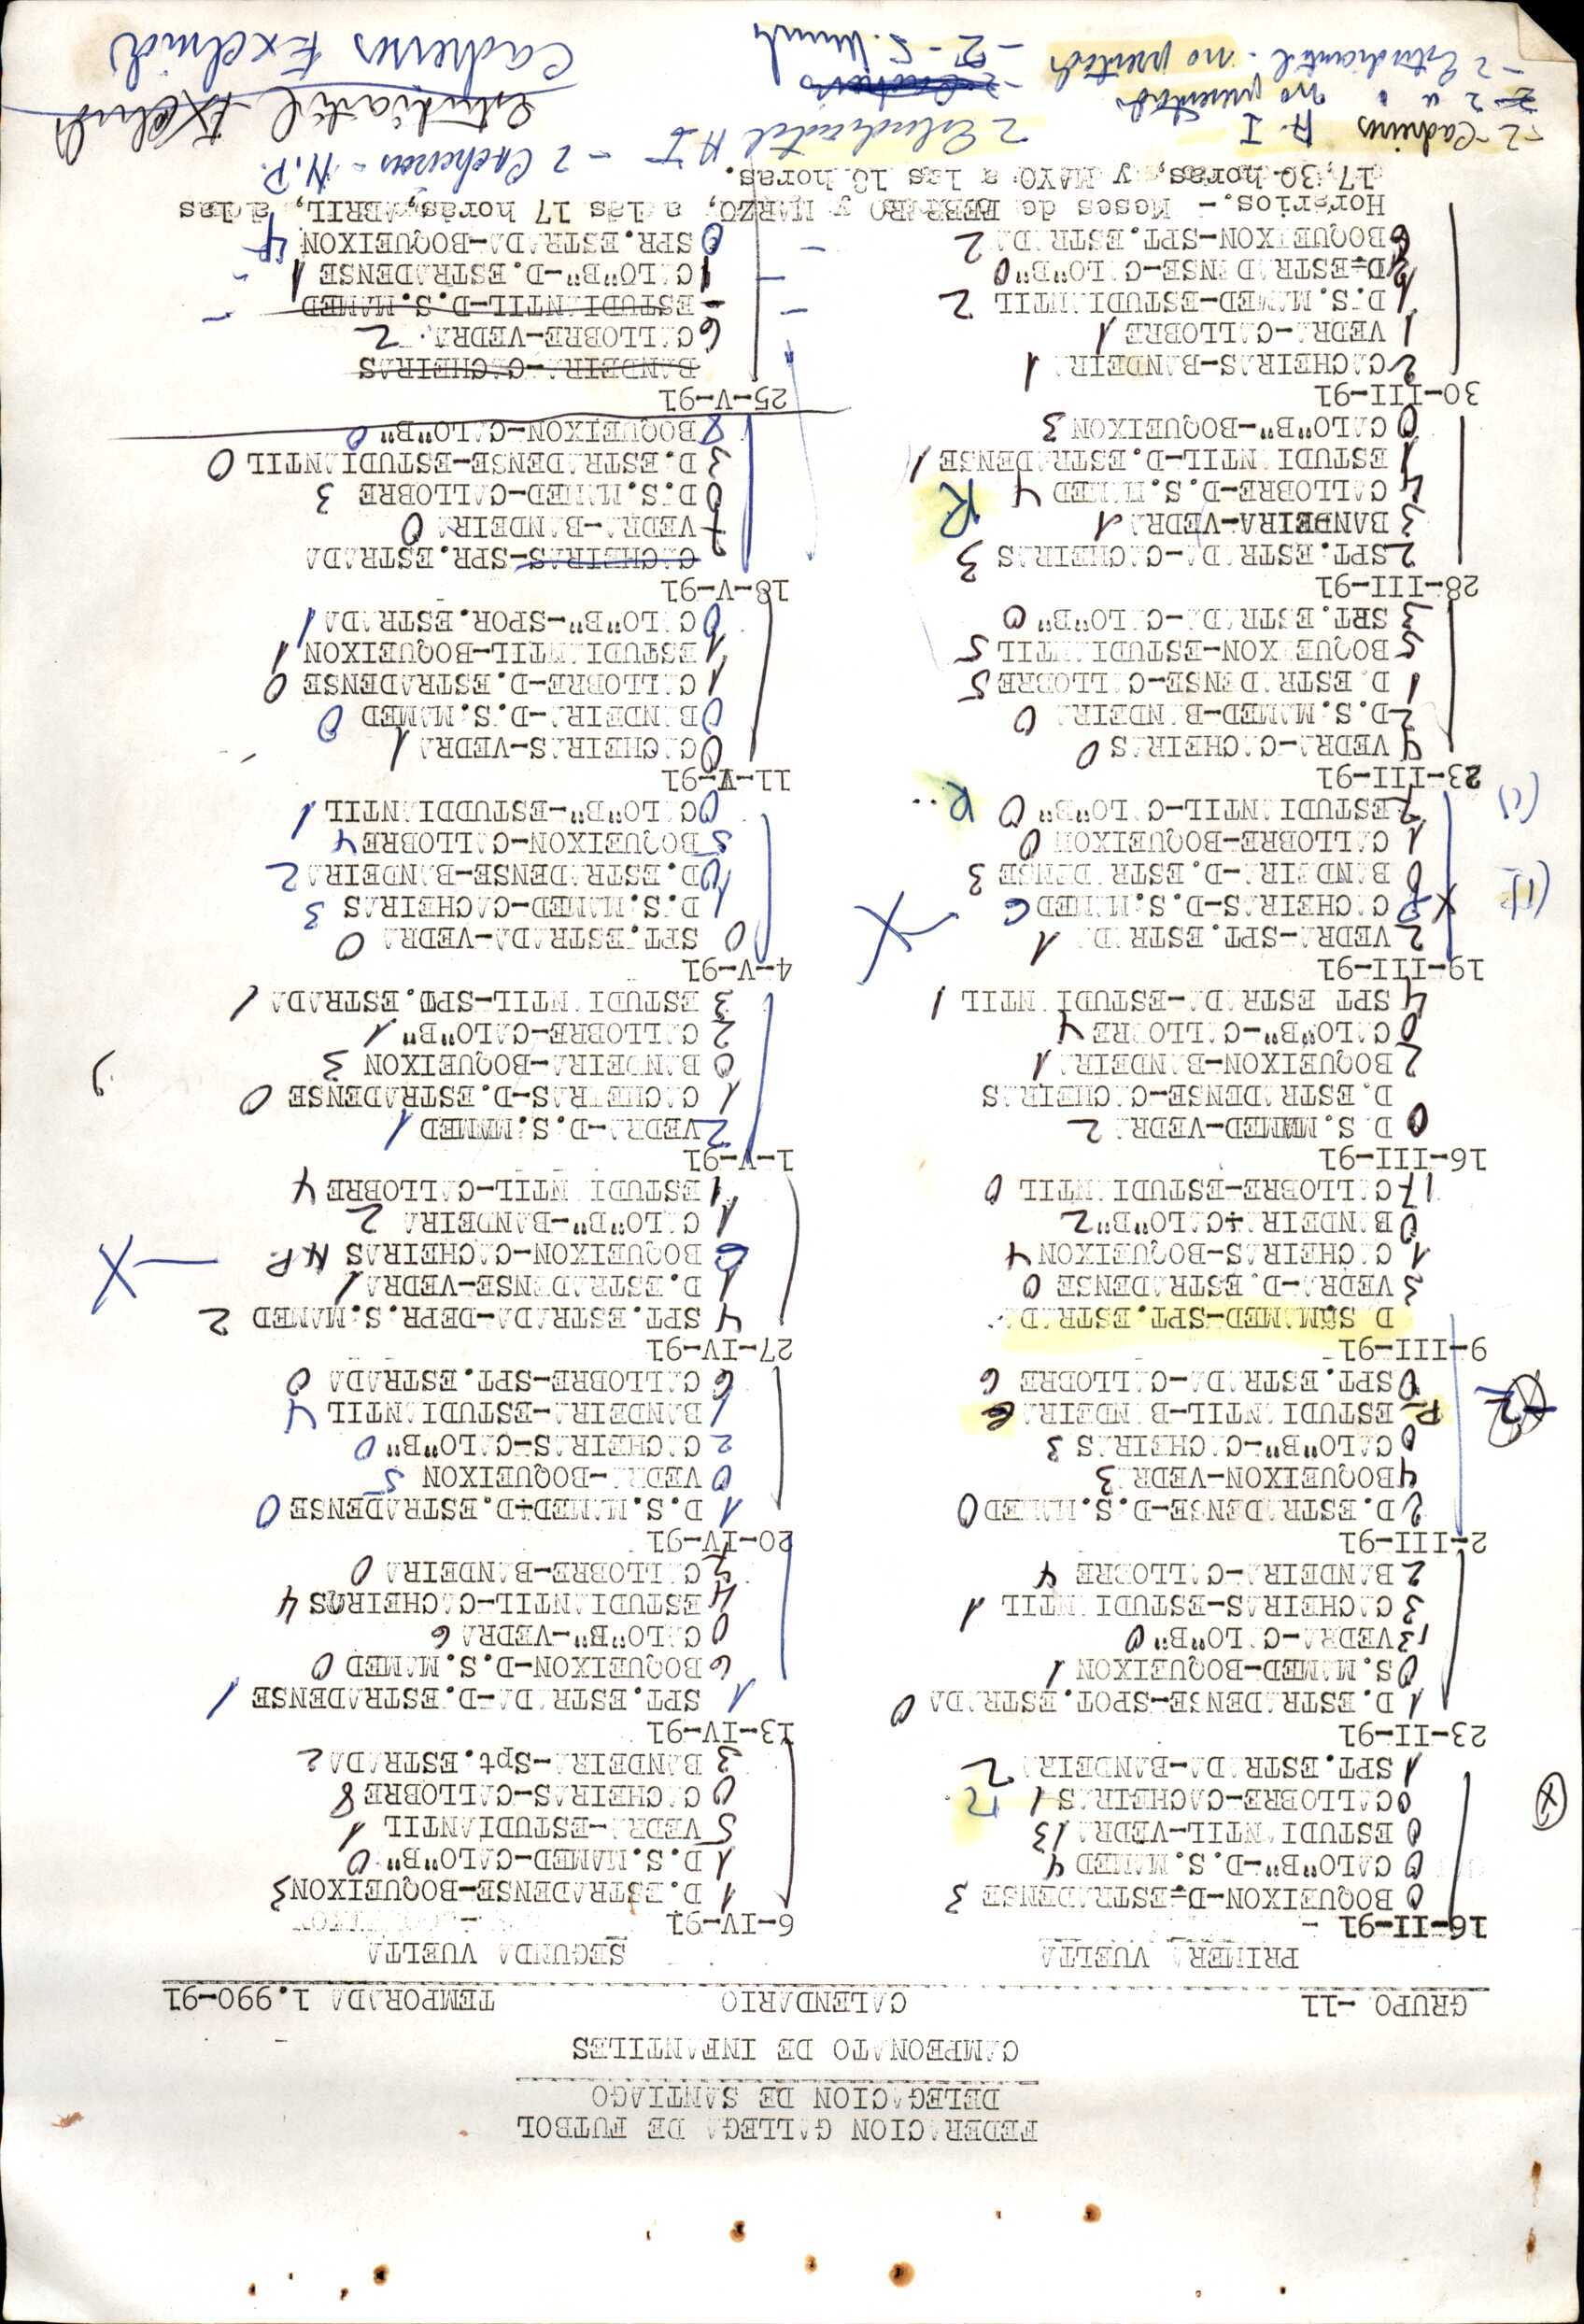 FEDERACION GALLEGA DE FUTBOL
DELEGACION DE SANTIAGO
CAMPEONATO DE INFANTILES
GRUPO -11 CALENDARIO TEMPORADA 1.990-91
PRIMERA VUELTA
16-II-91
0 BOQUEIXON-D=ESTRADENSE 3
0 CALO"B"-D.S.MAMED 4
0 ESTUDIANTIL-VEDRA 13
0 CALLOBRE-CACHEIRAS 1
1 SPT.ESTRADA-BANDEIRA 2
23-II-91
1 D.ESTRADENSE-SPOT.ESTRADA 0
0 S.MAMED-BOQUEIXON 1
13 VEDRA-CALO"B" 0
3 CACHEIRAS-ESTUDIANTIL 1
2 BANDEIRA-CALLOBRE 4
2-III-91
2 D.ESTRADENSE-D.S.MAMED 0
4 BOQUEIXON-VEDRA 3
0 CALO"B"-CACHEIRAS 3
ESTUDIANTIL-BANDEIRA
0 SPT.ESTRADA-CALLOBRE 6
9-III-91
D SAMAMED-SPT.ESTRADA
3 VEDRA-D.ESTRADENSE 0
1 CACHEIRAS-BOQUEIXON 4
0 BANDEIRA+CALO"B" 2
17 CALLOBRE-ESTUDIANTIL 0
16-III-91
0 D.S.MAMED-VEDRA 2
D.ESTRADENSE-CACHEIRAS
2 BOQUEIXON-BANDEIRA 1
0 CALO"B"-CALLOBRE 4
4 SPT ESTRADA-ESTUDIANTIL 1
19-III-91
2 VEDRA-SPT.ESTRADA 1
CACHEIRAS-D.S.MAMED
0 BANDEIRA-D.ESTRADENSE 3
1 CALLOBRE-BOQUEIXON 0
ESTUDIANTIL-CALO"B" 0 R
23-III-91
4 VEDRA-CACHEIRAS 0
2 D.S.MAMED-BANDEIRA 0
1 D.ESTRADENSE-CALLOBRE 5
5 BOQUEIXON-ESTUDIANTIL 5
3 SRT.ESTRADA-CALO"B" 0
28-III-91
2 SPT.ESTRADA-CACHEIRAS 3
3 BANDEIRA-VEDRA 1
4 CALLOBRE-D.S.MAMED 4 R
1 ESTUDIANTIL-D.ESTRADENSE 1
0 CALO"B"-BOQUEIXON 3
30-III-91
2 CACHEIRAS-BANDEIRA 1
1 VEDRA-CALLOBRE 1
1 D.S.MAMED-ESTUDIANTIL 2
D=ESTRADENSE-CALO"B" 0
6 BOQUEIXON-SPT.ESTRADA 2
SEGUNDA VUELTA
6-IV-91
1 D.ESTRADENSE-BOQUEIXON 3
1 D.S.MAMED-CALO"B" 0
5 VEDRA-ESTUDIANTIL 1
0 CACHEIRAS-CALLOBRE 8
3 BANDEIRA-Spt.ESTRADA 2
13-IV-91
1 SPT.ESTRADA-D.ESTRADENSE 1
6 BOQUEIXON-D.S.MAMED 0
0 CALO"B"-VEDRA 6
4 ESTUDIANTIL-CACHEIRAS 4
CALLOBRE-BANDEIRA 0
20-IV-91
1 D.S.MAMED+D.ESTRADENSE 0
0 VEDRA-BOQUEIXON 5
2 CACHEIRAS-CALO"B" 0
1 BANDEIRA-ESTUDIANTIL 4
6 CALLOBRE-SPT.ESTRADA 0
27-IV-91
4 SPT.ESTRADA-DEPR.S.MAMED 2
1 D.ESTRADENSE-VEDRA 1
BOQUEIXON-CACHEIRAS N.P.
1 CALO"B"-BANDEIRA 2
1 ESTUDIANTIL-CALLOBRE 4
1-V-91
2 VEDRA-D.S.MAMED 1
1 CACHEIRAS-D.ESTRADENSE 0
0 BANDEIRA-BOQUEIXON 3
2 CALLOBRE-CALO"B" 1
3 ESTUDIANTIL-SPT.ESTRADA 1
4-V-91
0 SPT.ESTRADA-VEDRA 0
1 D.S.MAMED-CACHEIRAS 3
D.ESTRADENSE-BANDEIRA 2
5 BOQUEIXON-CALLOBRE 4
0 CALO"B"-ESTUDDIANTIL 1
11-V-91
0 CACHEIRAS-VEDRA 1
0 BANDEIRA-D.S.MAMED 0
1 CALLOBRE-D.ESTRADENSE 0
1 ESTUDIANTIL-BOQUEIXON 1
0 CALO"B"-SPOR.ESTRADA 1
18-V-91
CACHEIRAS-SPR.ESTRADA
VEDRA-BANDEIRA 0
0 D.S.MAMED-CALLOBRE 3
3 D.ESTRADENSE-ESTUDIANTIL 0
8 BOQUEIXON-CALO"B" 0
25-V-91
BANDEIRA-CACHEIRAS
6 CALLOBRE-VEDRA 2
ESTUDIANTIL-D.S.MAMED
1 CALO"B"-D.ESTRADENSE 1
0 SPR.ESTRADA-BOQUEIXON 4
Horarios.- Meses de FEBRERO y MARZO, a las 17 horas, ABRIL, a las
17,30 horas, y MAYO a las 18 horas.
-2 Cacheiras - N.P.
2 Estudiantil A I
no presentado
-2 Estudiantil - no presentado
Estudiantil Excluido
Cacheiras Excluido